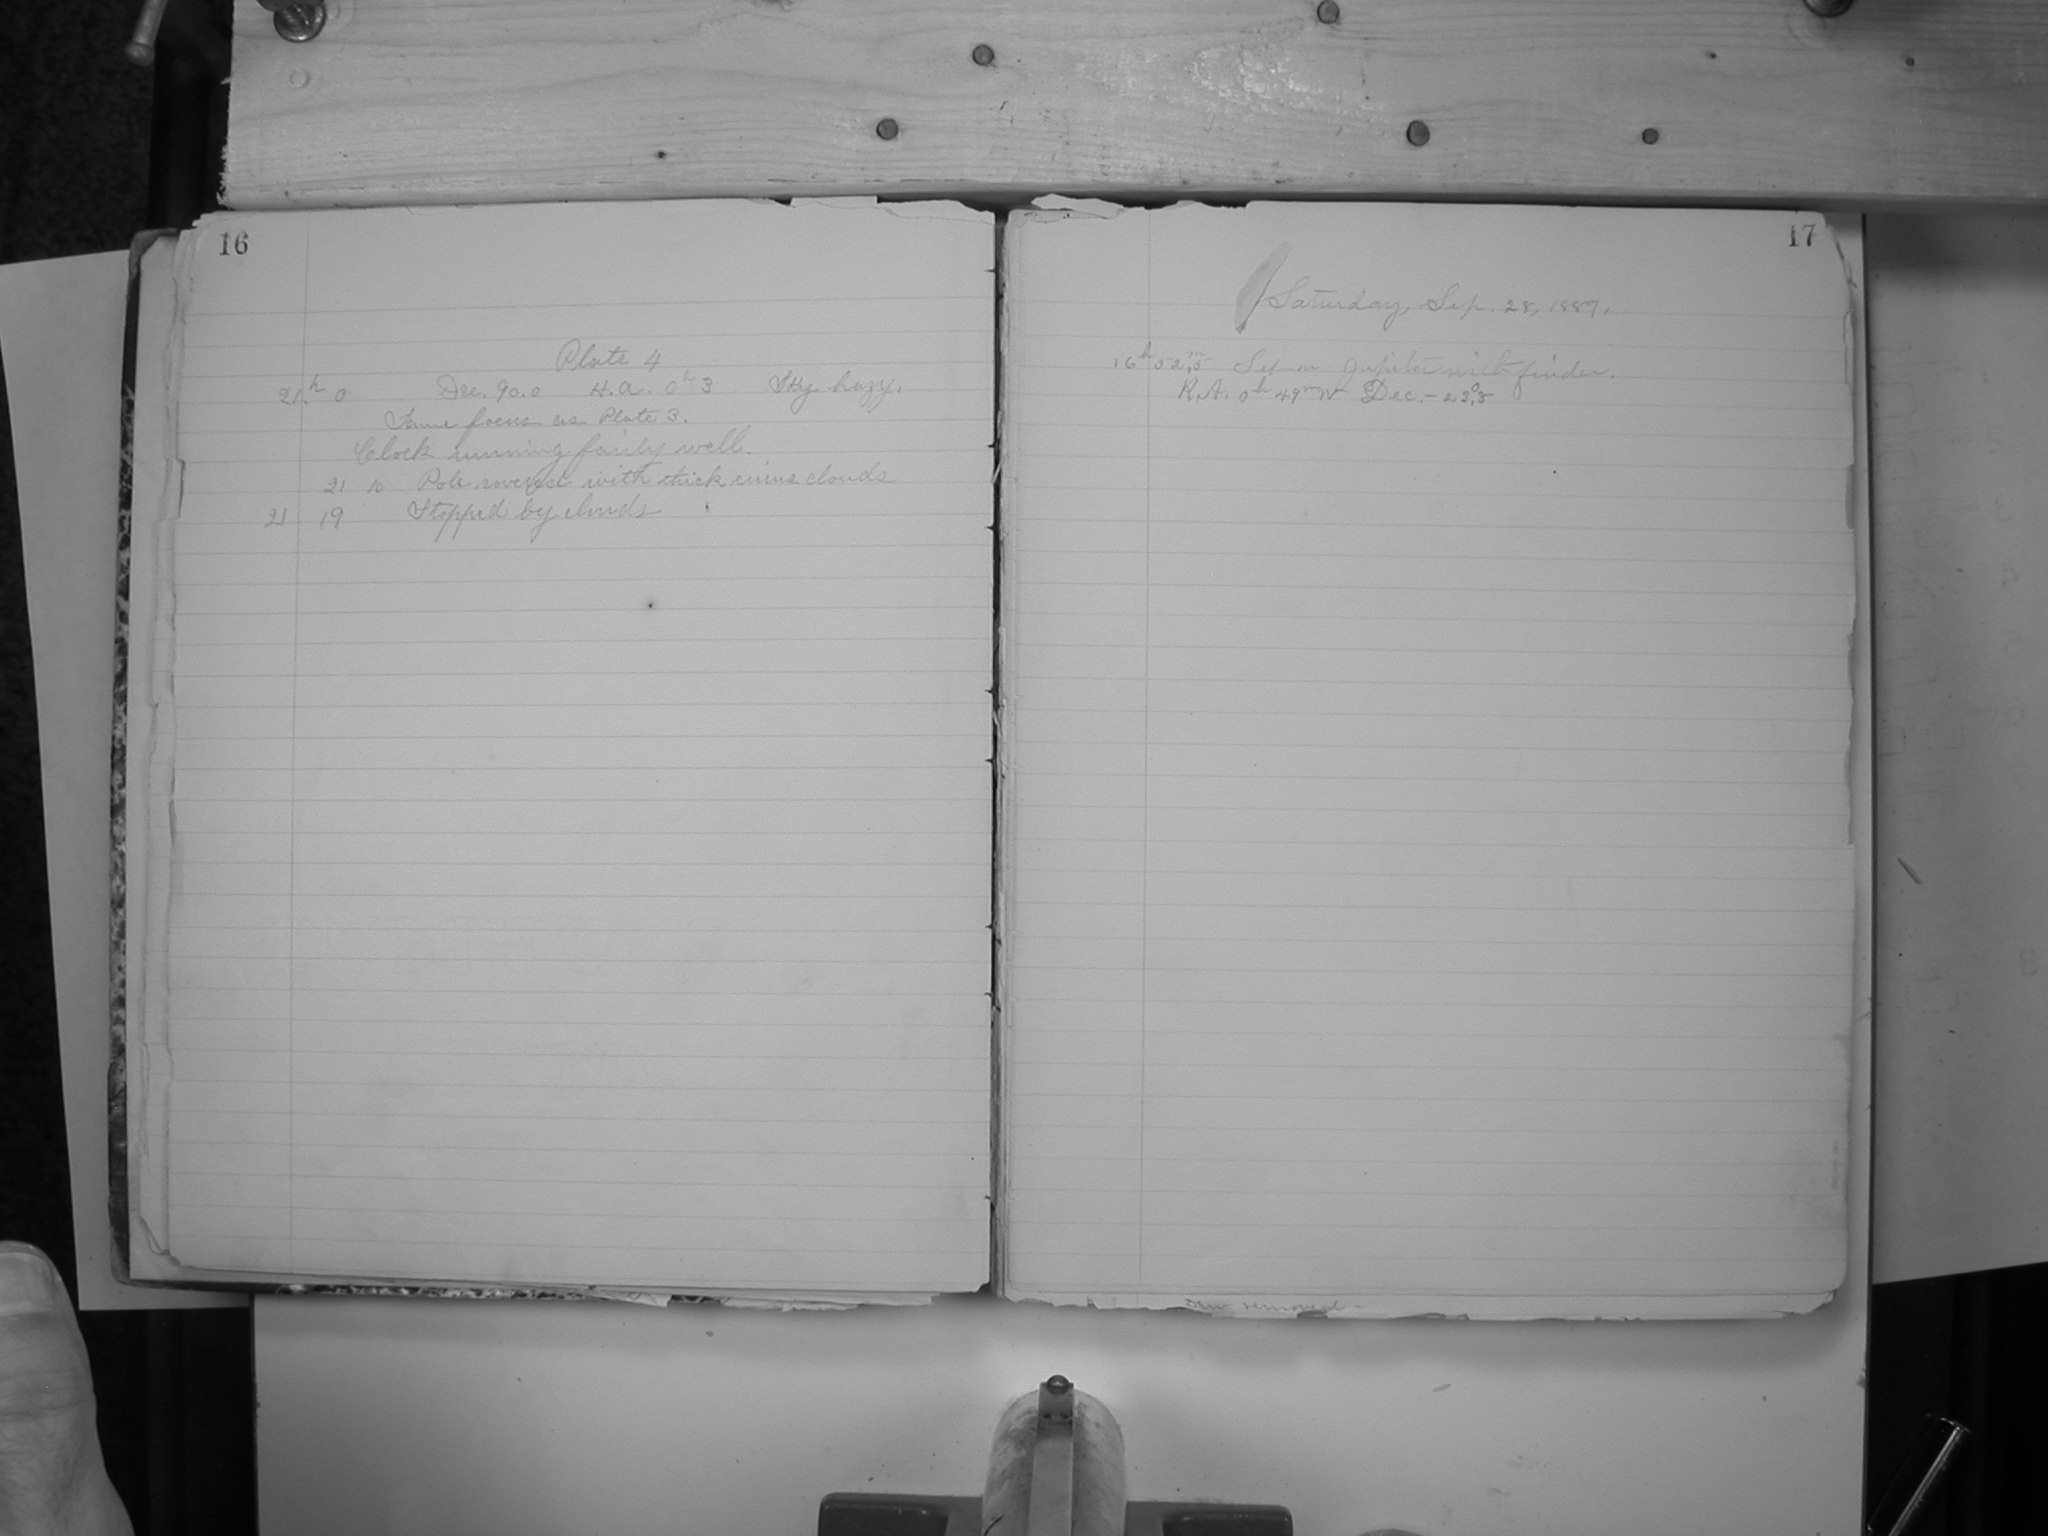 16
Plate 4
21 h 0 Dec. 90.0 H.A. 0 h 3 Sky hazy.
Same focus as Plate 3.
Clock running fairly well.
21 10 Pole covered with thick cirrus clouds
21 19 Stopped by clouds
17
Saturday, Sep. 28, 1889.
16 h 52.5 m Set on Jupiter with finder.
R.A. 0 h 49 m W Dec. - 23.°5
removed